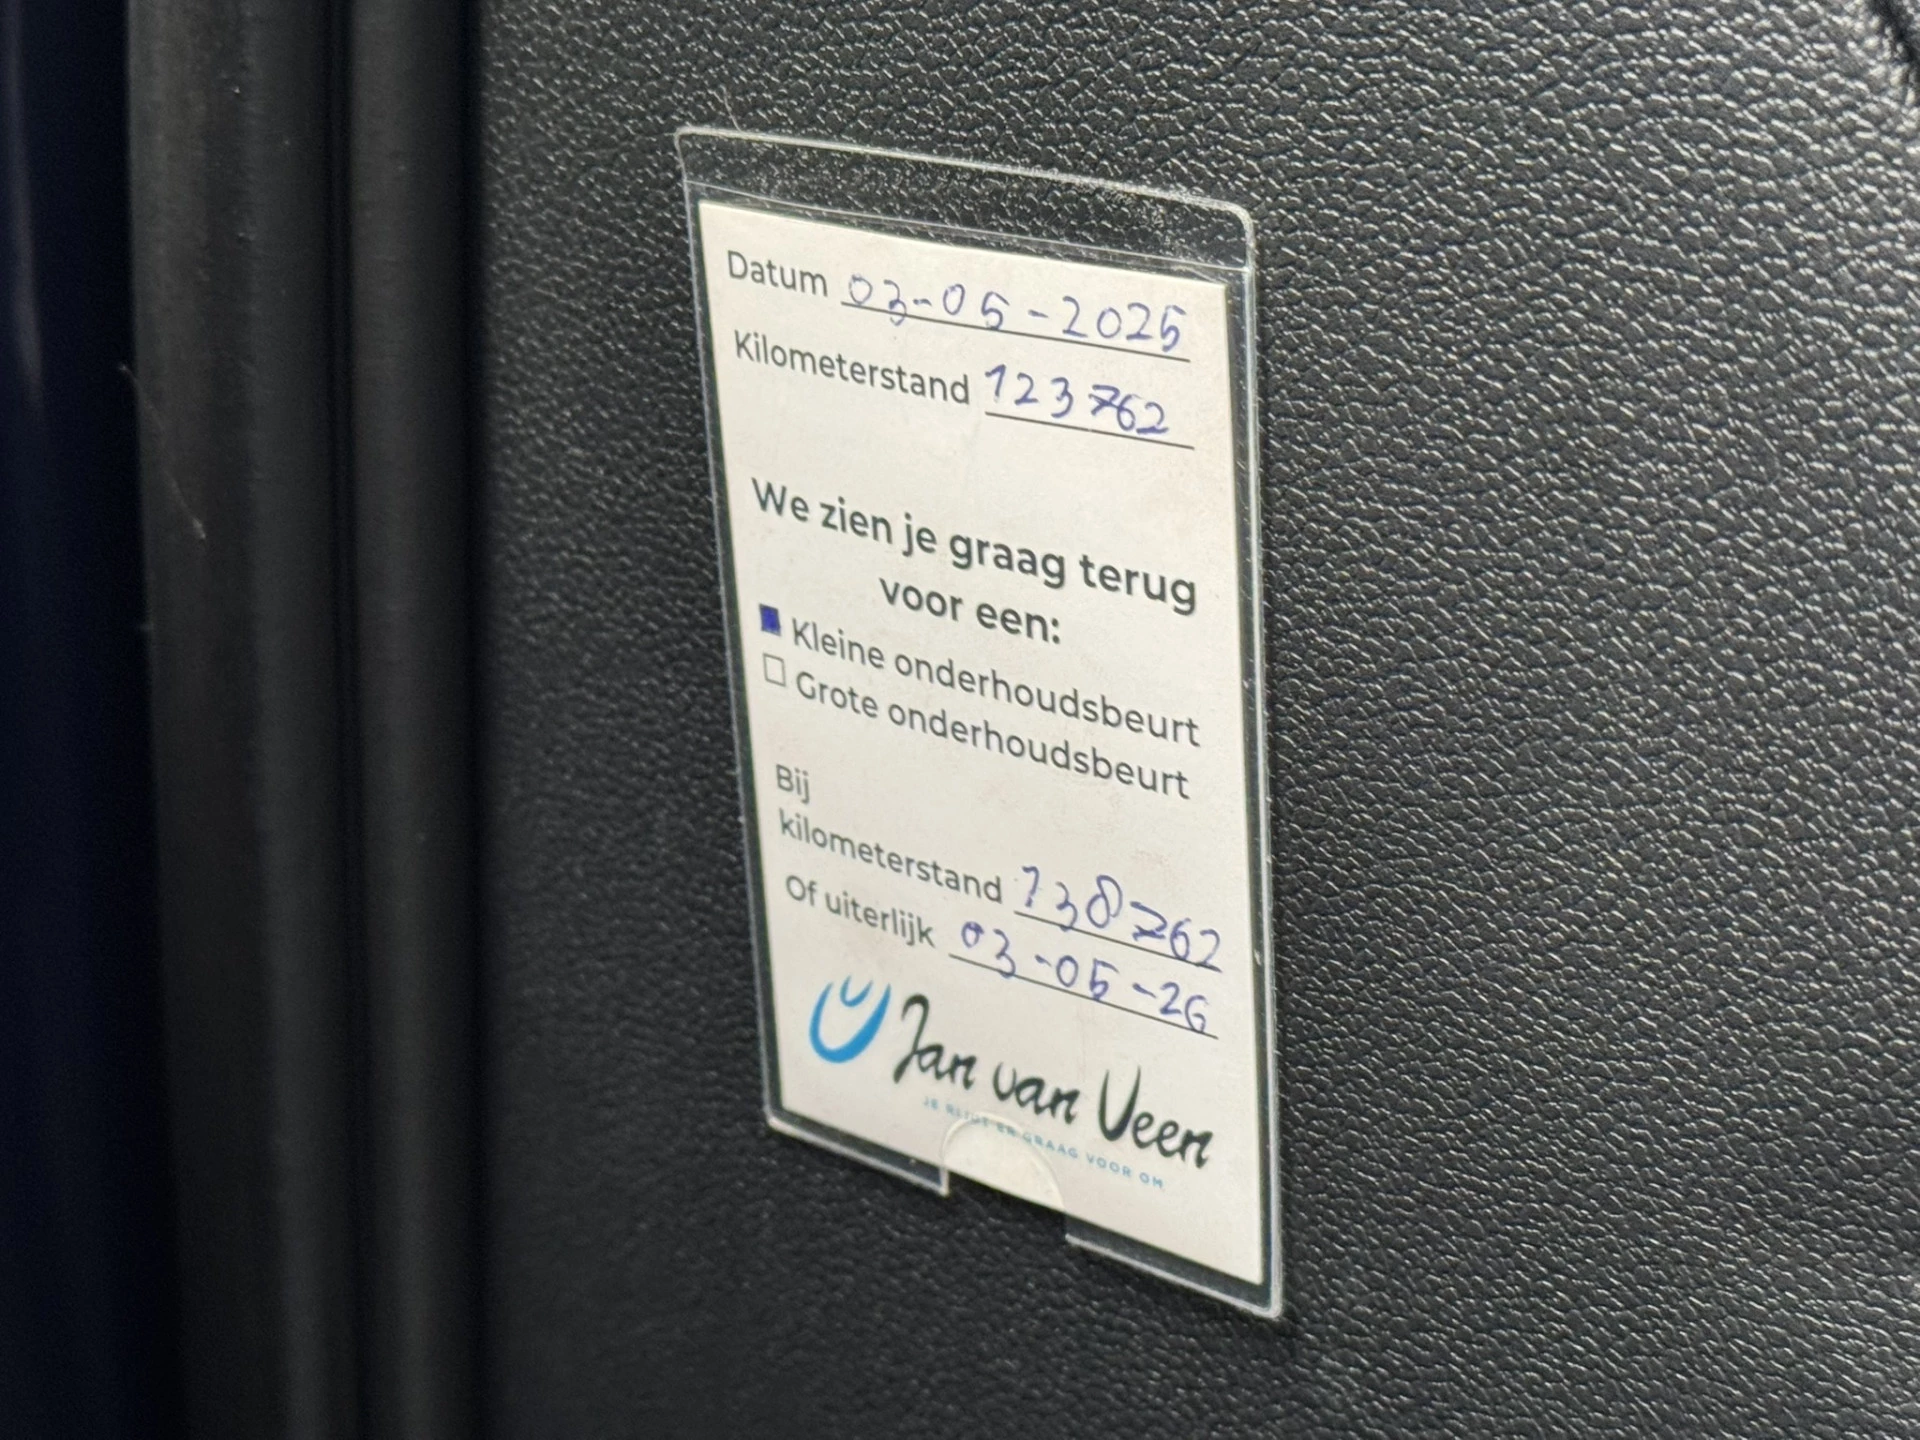 Datum 03-05-2025
Kilometerstand 123762
We zien je graag terug
voor een:
Kleine onderhoudsbeurt
Grote onderhoudsbeurt
Bij
kilometerstand 138762
Of uiterlijk 03-05-26
Jan van Veen
JE RIJDT ER GRAAG VOOR OM